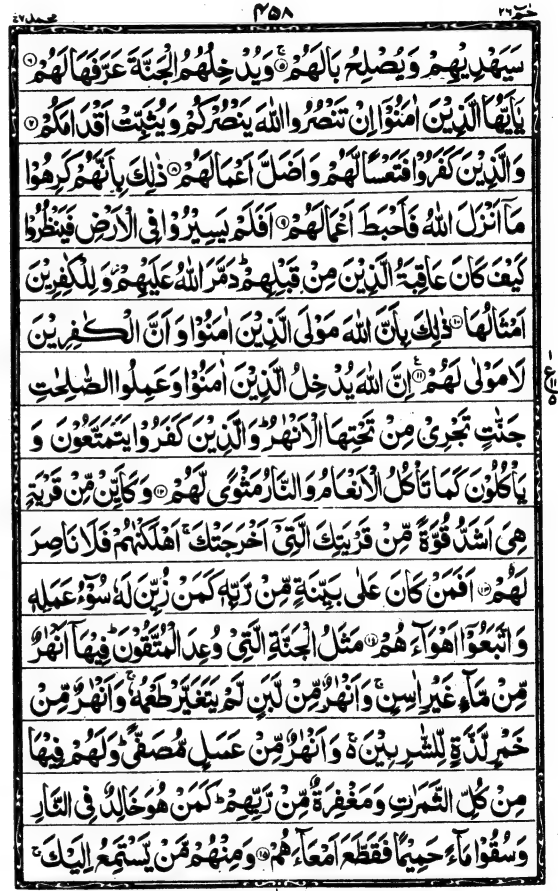 حٰمٓ ٢٦ ٤٥٨ محمد ٤٧
سَيَهْدِيْهِمْ وَيُصْلِحُ بَالَهُمْ ۚ۝٥ وَيُدْخِلُهُمُ الْجَنَّةَ عَرَّفَهَا لَهُمْ ۝٦
يٰۤاَيُّهَا الَّذِيْنَ اٰمَنُوْۤا اِنْ تَنْصُرُوا اللّٰهَ يَنْصُرْكُمْ وَيُثَبِّتْ اَقْدَامَكُمْ ۝٧
وَالَّذِيْنَ كَفَرُوْا فَتَعْسًا لَّهُمْ وَاَضَلَّ اَعْمَالَهُمْ ۝٨ ذٰلِكَ بِاَنَّهُمْ كَرِهُوْا
مَاۤ اَنْزَلَ اللّٰهُ فَاَحْبَطَ اَعْمَالَهُمْ ۝٩ اَفَلَمْ يَسِيْرُوْا فِى الْاَرْضِ فَيَنْظُرُوْا
كَيْفَ كَانَ عَاقِبَةُ الَّذِيْنَ مِنْ قَبْلِهِمْ ؕ دَمَّرَ اللّٰهُ عَلَيْهِمْ ؗ وَلِلْكٰفِرِيْنَ
اَمْثَالُهَا ۝١٠ ذٰلِكَ بِاَنَّ اللّٰهَ مَوْلَى الَّذِيْنَ اٰمَنُوْا وَاَنَّ الْكٰفِرِيْنَ
لَا مَوْلٰى لَهُمْ ۝١١ اِنَّ اللّٰهَ يُدْخِلُ الَّذِيْنَ اٰمَنُوْا وَعَمِلُوا الصّٰلِحٰتِ
جَنّٰتٍ تَجْرِيْ مِنْ تَحْتِهَا الْاَنْهٰرُ ؕ وَالَّذِيْنَ كَفَرُوْا يَتَمَتَّعُوْنَ وَ
يَاْكُلُوْنَ كَمَا تَاْكُلُ الْاَنْعَامُ وَالنَّارُ مَثْوًى لَّهُمْ ۝١٢ وَكَاَيِّنْ مِّنْ قَرْيَةٍ
هِيَ اَشَدُّ قُوَّةً مِّنْ قَرْيَتِكَ الَّتِيْۤ اَخْرَجَتْكَ ۚ اَهْلَكْنٰهُمْ فَلَا نَاصِرَ
لَهُمْ ۝١٣ اَفَمَنْ كَانَ عَلٰى بَيِّنَةٍ مِّنْ رَّبِّهٖ كَمَنْ زُيِّنَ لَهٗ سُوْٓءُ عَمَلِهٖ
وَاتَّبَعُوْۤا اَهْوَآءَهُمْ ۝١٤ مَثَلُ الْجَنَّةِ الَّتِيْ وُعِدَ الْمُتَّقُوْنَ ؕ فِيْهَاۤ اَنْهٰرٌ
مِّنْ مَّآءٍ غَيْرِ اٰسِنٍ ۚ وَاَنْهٰرٌ مِّنْ لَّبَنٍ لَّمْ يَتَغَيَّرْ طَعْمُهٗ ۚ وَاَنْهٰرٌ مِّنْ
خَمْرٍ لَّذَّةٍ لِّلشّٰرِبِيْنَ ۚ۬ وَاَنْهٰرٌ مِّنْ عَسَلٍ مُّصَفًّى ؕ وَلَهُمْ فِيْهَا
مِنْ كُلِّ الثَّمَرٰتِ وَمَغْفِرَةٌ مِّنْ رَّبِّهِمْ ؕ كَمَنْ هُوَ خَالِدٌ فِى النَّارِ
وَسُقُوْا مَآءً حَمِيْمًا فَقَطَّعَ اَمْعَآءَهُمْ ۝١٥ وَمِنْهُمْ مَّنْ يَّسْتَمِعُ اِلَيْكَ ۚ
١
ع
١١
٥